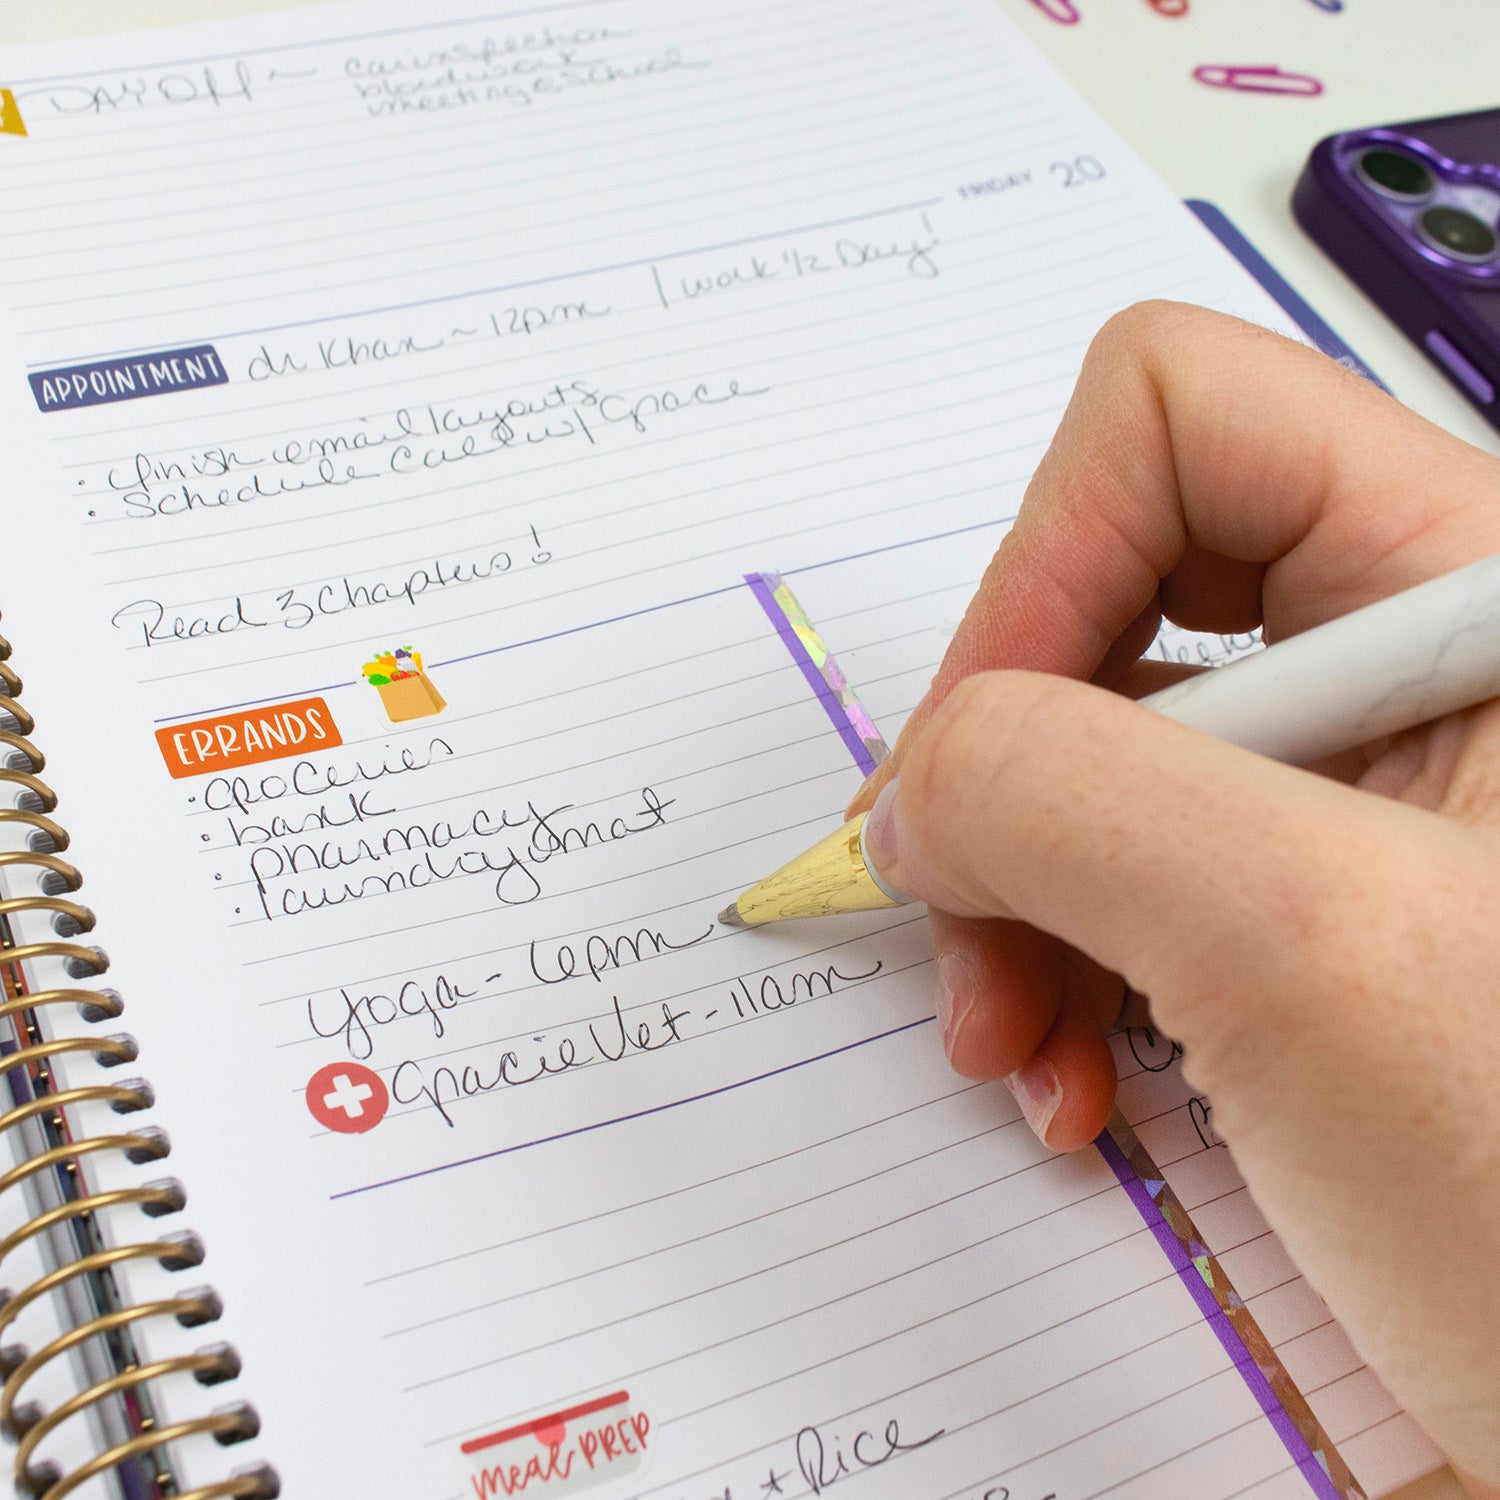 DAY OFF ~ car inspection
bloodwork
meeting @ school
FRIDAY 20
APPOINTMENT dr Khan ~ 12pm | work 1/2 Day!
• finish email layouts
• schedule call w/ Grace
Read 3 Chapters!
ERRANDS
• groceries
• bank
• pharmacy
• laundrymat
Yoga - 6pm
Gracie Vet - 11am
meal PREP
+ Rice